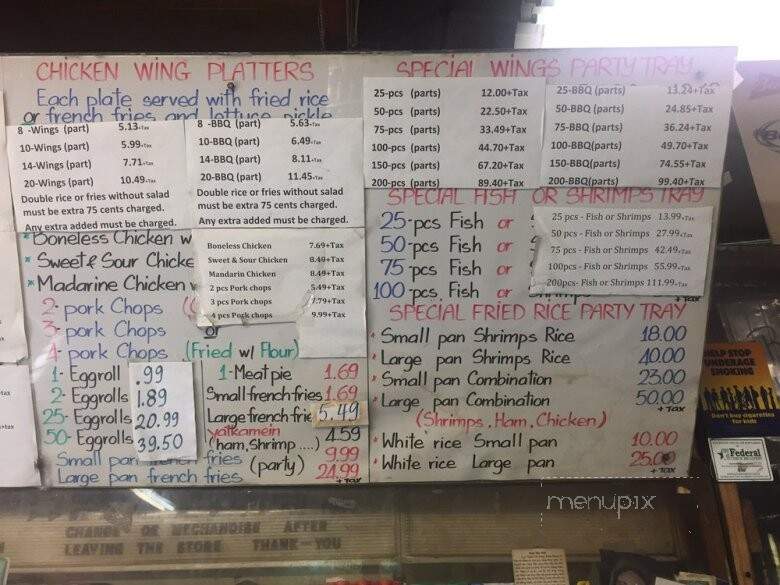 CHICKEN WING PLATTERS
Each plate served with fried rice
or french fries and lettuce pickle
8 -Wings (part) 5.13+Tax
10-Wings (part) 5.99+Tax
14-Wings (part) 7.71+Tax
20-Wings (part) 10.49+Tax
Double rice or fries without salad
must be extra 75 cents charged.
Any extra added must be charged.
8 -BBQ (part) 5.63+Tax
10-BBQ (part) 6.49+Tax
14-BBQ (part) 8.11+Tax
20-BBQ (part) 11.45+Tax
Double rice or fries without salad
must be extra 75 cents charged.
Any extra added must be charged.
* Boneless Chicken w
* Sweet & Sour Chicke
* Madarine Chicken w
2- pork Chops
3- pork Chops or
4- pork Chops (Fried w/ Flour)
Boneless Chicken 7.69+Tax
Sweet & Sour Chicken 8.49+Tax
Mandarin Chicken 8.49+Tax
2 pcs Pork chops 5.49+Tax
3 pcs Pork chops 7.79+Tax
4 pcs Pork chops 9.99+Tax
1- Eggroll .99
2- Eggrolls 1.89
25- Eggrolls 20.99
50- Eggrolls 39.50
1-Meat pie 1.69
Small french fries 1.69
Large french frie 5.49
yatkamein 4.59
(ham, Shrimp ....)
Small pan french fries (party) 9.99
Large pan french fries 24.99
+ Tax
SPECIAL WINGS PARTY TRAY
25-pcs (parts) 12.00+Tax
50-pcs (parts) 22.50+Tax
75-pcs (parts) 33.49+Tax
100-pcs (parts) 44.70+Tax
150-pcs (parts) 67.20+Tax
200-pcs (parts) 89.40+Tax
25-BBQ (parts) 13.24+Tax
50-BBQ (parts) 24.85+Tax
75-BBQ (parts) 36.24+Tax
100-BBQ (parts) 49.70+Tax
150-BBQ(parts) 74.55+Tax
200-BBQ(parts) 99.40+Tax
SPECIAL FISH OR SHRIMPS TRAY
25-pcs Fish or
50-pcs Fish or
75-pcs Fish or
100-pcs Fish or
+ Tax
25 pcs - Fish or Shrimps 13.99+Tax
50 pcs - Fish or Shrimps 27.99+Tax
75 pcs - Fish or Shrimps 42.49+Tax
100pcs - Fish or Shrimps 55.99+Tax
200pcs- Fish or Shrimps 111.99+Tax
SPECIAL FRIED RICE PARTY TRAY
* Small pan Shrimps Rice 18.00
* Large pan Shrimps Rice 40.00
* Small pan Combination 23.00
* Large pan Combination 50.00
+ TAX
(Shrimps, Ham, Chicken)
* White rice Small pan 10.00
* White rice Large pan 25.00
+ TAX
HELP STOP
UNDERAGE
SMOKING
Don't buy cigarettes
for kids
Federal
menupix
CHANGE OR MECHANDISE AFTER
LEAVING THE STORE THANK-YOU